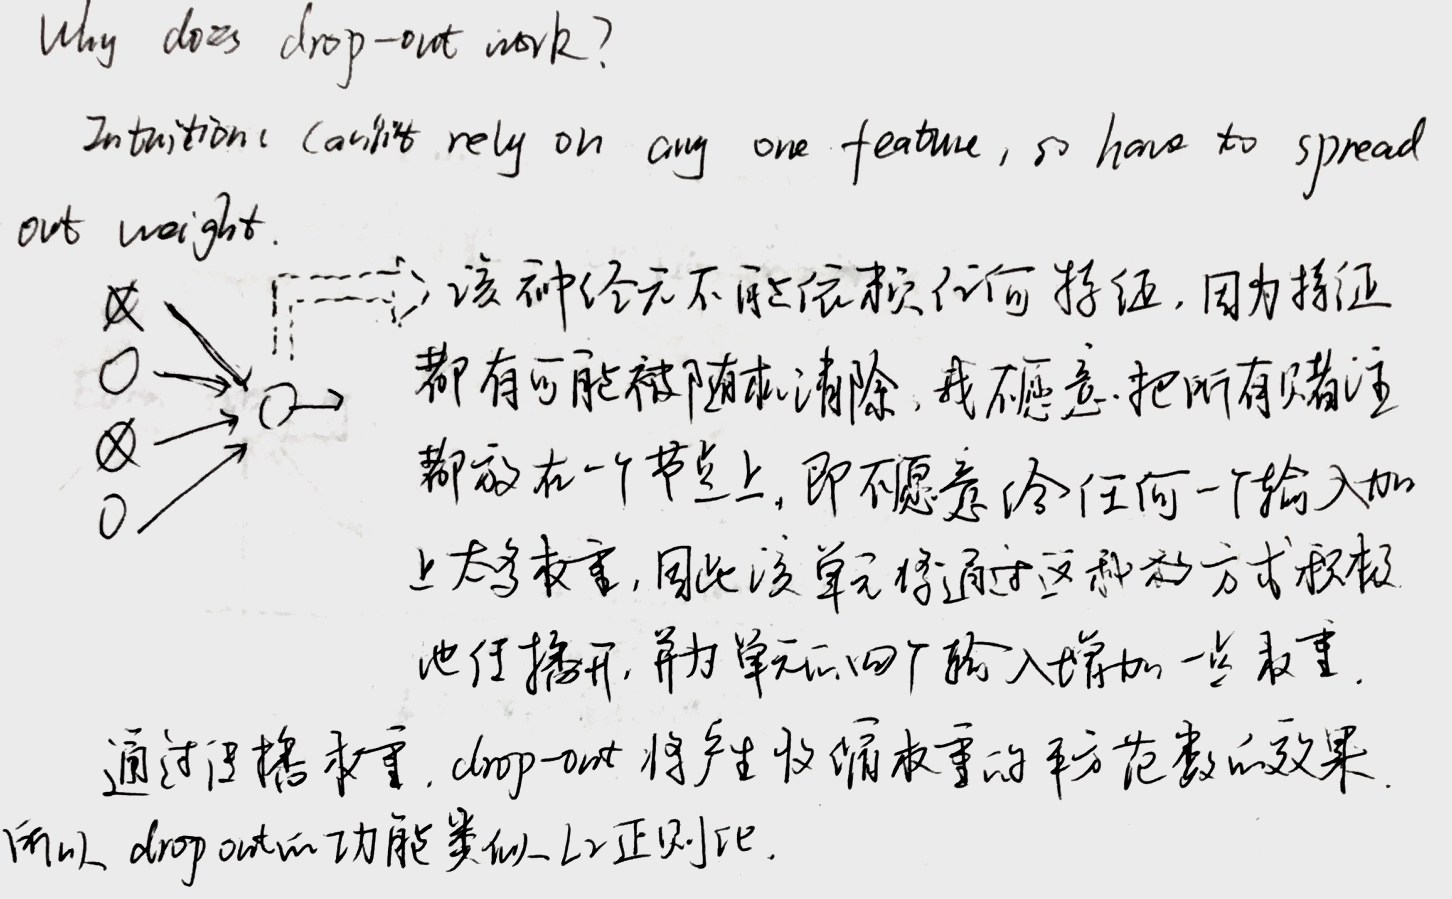 Why does drop-out work?
Intuition: Can't rely on any one feature, so have to spread
out weight.
该神经元不能依赖任何特征,因为特征
都有可能被随机清除,我不愿意把所有赌注
都放在一个节点上,即不愿意给任何一个输入加
上太多权重,因此该单元将通过这种方式积极
地传播开,并为单元的四个输入增加一点权重.
通过传播权重,drop-out 将产生收缩权重的平方范数的效果.
所以 drop out的功能类似 L2正则化.